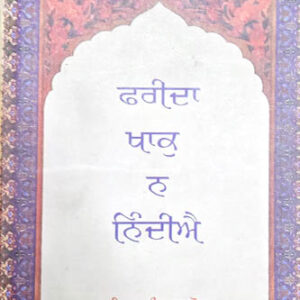 ਫਰੀਦਾ
ਖਾਕੁ
ਨ
ਨਿੰਦੀਐ